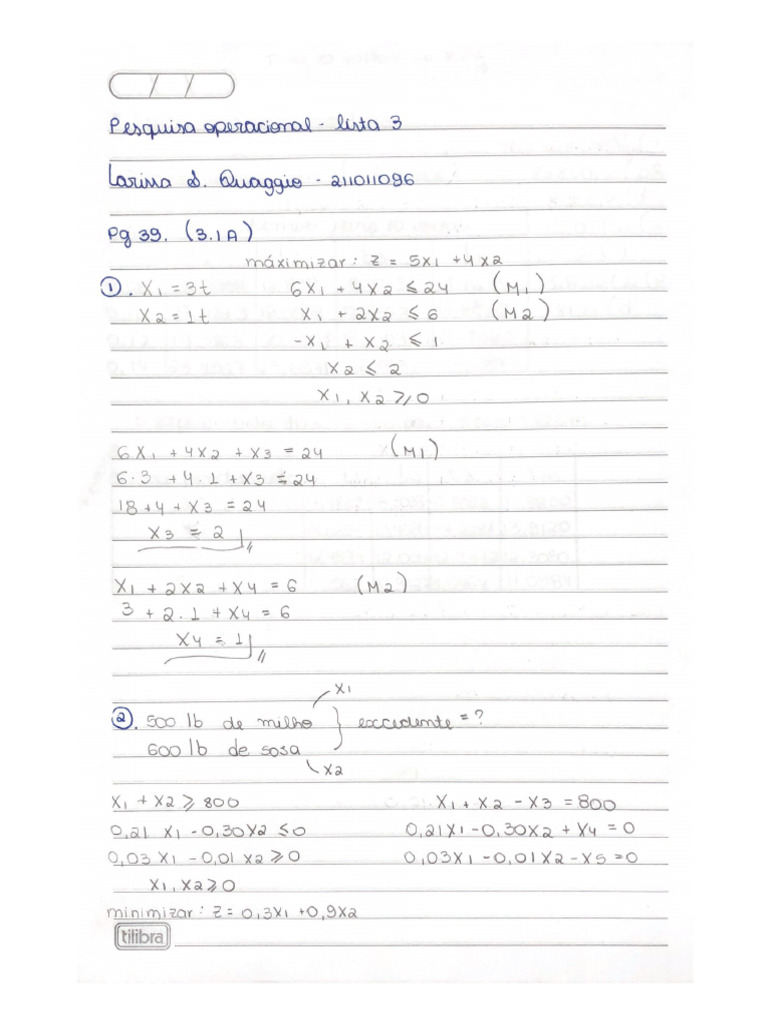 / /
Pesquisa operacional - lista 3
Larissa S. Quaggio - 211011096
Pg 39. (3.1A)
máximizar: z = 5x1 + 4x2
1. x1 = 3t 6x1 + 4x2 ≤ 24 (M1)
x2 = 1t x1 + 2x2 ≤ 6 (M2)
-x1 + x2 ≤ 1
x2 ≤ 2
x1, x2 ≥ 0
6x1 + 4x2 + x3 = 24 (M1)
6·3 + 4·1 + x3 = 24
18 + 4 + x3 = 24
x3 = 2
x1 + 2x2 + x4 = 6 (M2)
3 + 2·1 + x4 = 6
x4 = 1
x1
2. 500 lb de milho } excedente = ?
600 lb de sosa
x2
x1 + x2 ≥ 800 x1 + x2 - x3 = 800
0,21 x1 - 0,30x2 ≤ 0 0,21x1 - 0,30x2 + x4 = 0
0,03 x1 - 0,01 x2 ≥ 0 0,03x1 - 0,01x2 - x5 = 0
x1, x2 ≥ 0
minimizar: z = 0,3x1 + 0,9x2
tilibra